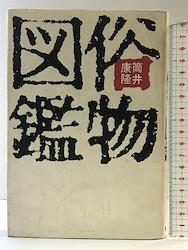 俗物
図鑑
筒井
康隆